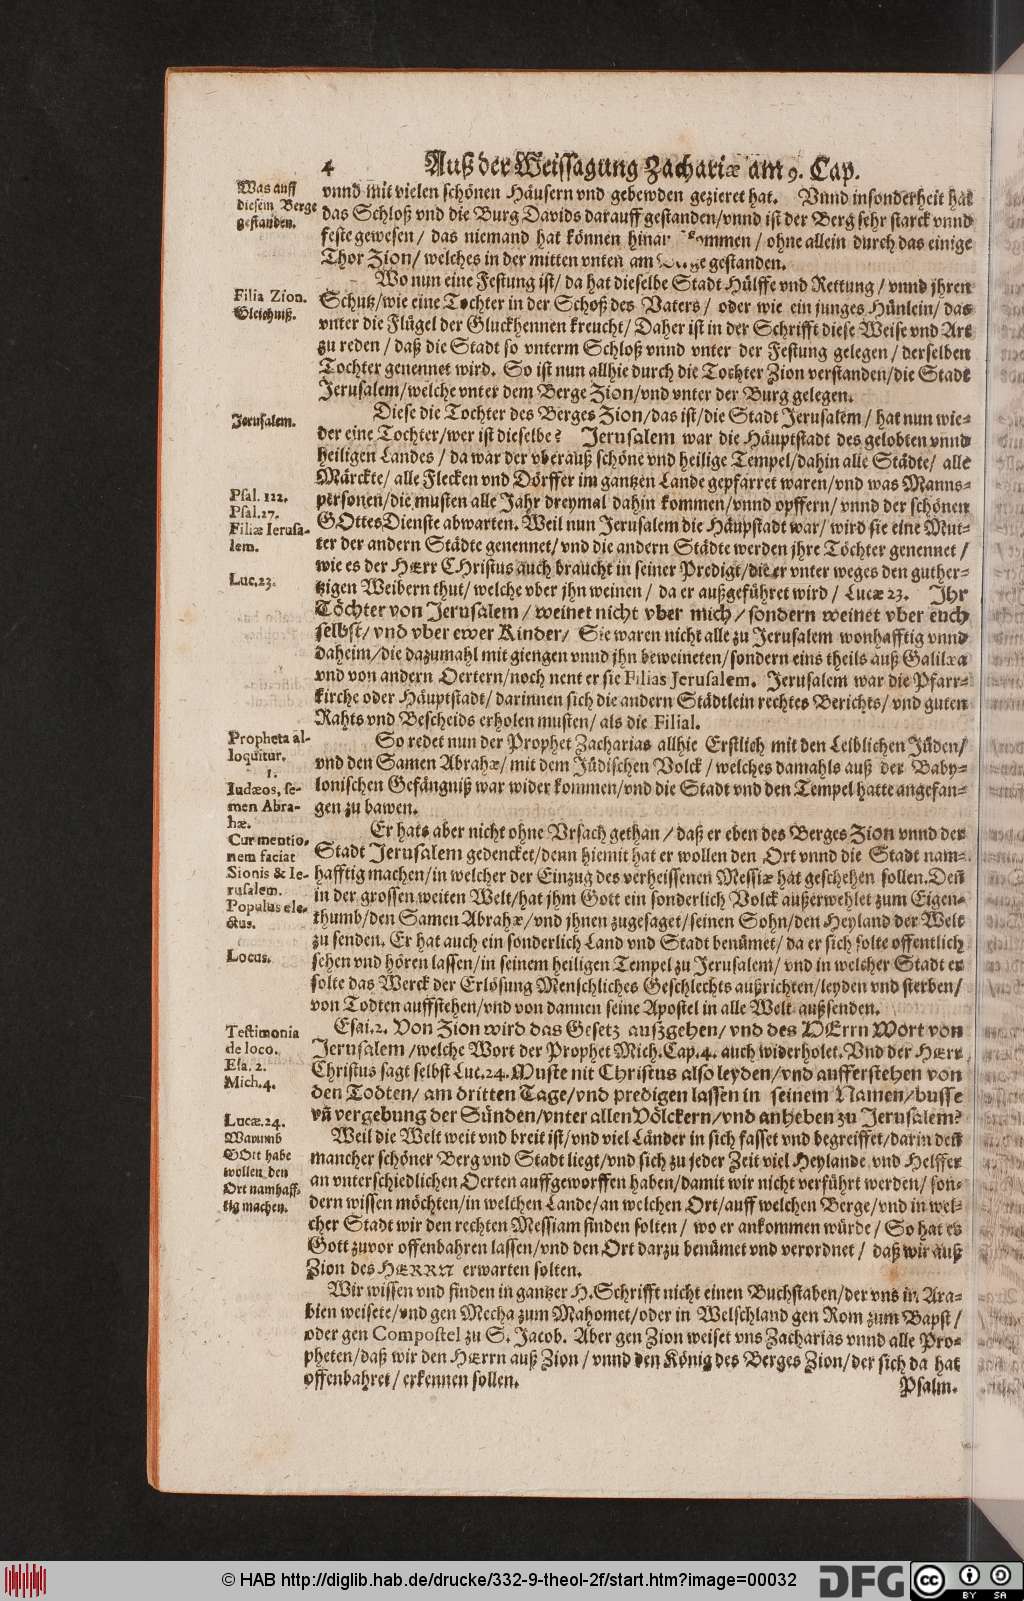 4 Auß der Weissagung Zachariæ am 9. Cap.
Was auff
diesem Berge
gestanden.
vnnd mit vielen schönen Häusern vnd gebewden gezieret hat. Vnnd insonderheit hat
das Schloß vnd die Burg Davids darauff gestanden/vnnd ist der Berg sehr starck vnnd
feste gewesen/ das niemand hat können kommen/ ohne allein durch das einige
Thor Zion/ welches in der mitten vnten am gestanden.
Filia Zion.
Gleichniß.
Wo nun eine Festung ist/ da hat dieselbe Stadt Hülffe vnd Rettung/ vnnd jhren
Schutz/wie eine Tochter in der Schoß des Vaters/ oder wie ein junges Hünlein/ das
vnter die Flügel der Gluckhennen kreucht/ Daher ist in der Schrifft diese Weise vnd Art
zu reden/ daß die Stadt so vnterm Schloß vnnd vnter der Festung gelegen/ derselben
Tochter genennet wird. So ist nun allhie durch die Tochter Zion verstanden/die Stadt
Jerusalem/welche vnter dem Berge Zion/vnd vnter der Burg gelegen.
Jerusalem.
Diese die Tochter des Berges Zion/das ist/die Stadt Jerusalem/ hat nun wie-
der eine Tochter/wer ist dieselbe? Jerusalem war die Häuptstadt des gelobten vnnd
heiligen Landes/ da war der vberauß schöne vnd heilige Tempel/dahin alle Städte/ alle
Märckte/ alle Flecken vnd Dörffer im gantzen Lande gepfarret waren/vnd was Manns-
Psal. 122.
Psal.27.
Filiæ Ierusa-
lem.
personen/die musten alle Jahr dreymal dahin kommen/vnnd opffern/ vnnd der schönen
GOttesDienste abwarten. Weil nun Jerusalem die Häuptstadt war/ wird sie eine Mut-
ter der andern Städte genennet/ vnd die andern Städte werden jhre Töchter genennet/
wie es der HErr CHristus auch braucht in seiner Predigt/die er vnter weges den guther-
Luc.23.
tzigen Weibern thut/ welche vber jhn weinen/ da er außgeführet wird/ Lucæ 23. Ihr
Töchter von Jerusalem/ weinet nicht vber mich/ sondern weinet vber euch
selbst/ vnd vber ewer Kinder/ Sie waren nicht alle zu Jerusalem wonhafftig vnnd
daheim/die dazumahl mit giengen vnnd jhn beweineten/sondern eins theils auß Galilæa
vnd von andern Oertern/noch nent er sie Filias Jerusalem. Jerusalem war die Pfarr-
kirche oder Häuptstadt/ darinnen sich die andern Städtlein rechtes Berichts/ vnd guten
Rahts vnd Bescheids erholen musten/ als die Filial.
Propheta al-
loquitur.
1.
Iudæos, se-
men Abra-
hæ.
So redet nun der Prophet Zacharias allhie Erstlich mit den Leiblichen Jüden/
vnd den Samen Abrahæ/ mit dem Jüdischen Volck/ welches damahls auß der Baby-
lonischen Gefängniß war wider kommen/vnd die Stadt vnd den Tempel hatte angefan-
gen zu bawen.
Cur mentio-
nem faciat
Sionis & Ie-
rusalem.
Populus ele-
ctus.
Er hats aber nicht ohne Vrsach gethan/ daß er eben des Berges Zion vnnd der
Stadt Jerusalem gedencket/denn hiemit hat er wollen den Ort vnnd die Stadt nam-
hafftig machen/in welcher der Einzug des verheissenen Messiæ hat geschehen sollen. Deñ
in der grossen weiten Welt/hat jhm Gott ein sonderlich Volck außerwehlet zum Eigen-
thumb/den Samen Abrahæ/vnd jhnen zugesaget/seinen Sohn/den Heyland der Welt
zu senden. Er hat auch ein sonderlich Land vnd Stadt benümet/ da er sich solte offentlich
Locus.
sehen vnd hören lassen/in seinem heiligen Tempel zu Jerusalem/ vnd in welcher Stadt er
solte das Werck der Erlösung Menschliches Geschlechts außrichten/leyden vnd sterben/
von Todten auffstehen/vnd von dannen seine Apostel in alle Welt außsenden.
Testimonia
de loco.
Esa. 2.
Mich.4.
Esai.2. Von Zion wird das Gesetz außgehen/ vnd des HErrn Wort von
Jerusalem/welche Wort der Prophet Mich.Cap.4. auch widerholet. Vnd der HErr
Christus sagt selbst Luc.24. Muste nit Christus also leyden/vnd aufferstehen von
den Todten/ am dritten Tage/vnd predigen lassen in seinem Namen/busse
Lucæ.24.
vñ vergebung der Sünden/vnter allen Völckern/vnd anheben zu Jerusalem?
Warumb
GOtt habe
wollen den
Ort namhaff-
tig machen.
Weil die Welt weit vnd breit ist/vnd viel Länder in sich fasset vnd begreiffet/darin deñ
mancher schöner Berg vnd Stadt liegt/vnd sich zu jeder Zeit viel Heylande vnd Helffer
an vnterschiedlichen Oerten auffgeworffen haben/damit wir nicht verführt werden/ son-
dern wissen möchten/in welchen Lande/an welchen Ort/auff welchen Berge/vnd in wel-
cher Stadt wir den rechten Messiam finden solten/ wo er ankommen würde/ So hat es
Gott zuvor offenbahren lassen/vnd den Ort darzu benümet vnd verordnet/ daß wir auß
Zion des HERRN erwarten solten.
Wir wissen vnd finden in gantzer H.Schrifft nicht einen Buchstaben/der vns in Ara-
bien weisete/vnd gen Mecha zum Mahomet/oder in Welschland gen Rom zum Bapst/
oder gen Compostel zu S. Jacob. Aber gen Zion weiset vns Zacharias vnnd alle Pro-
pheten/daß wir den HErrn auß Zion/ vnnd den König des Berges Zion/der sich da hat
offenbahret/ erkennen sollen.
Psalm.
© HAB http://diglib.hab.de/drucke/332-9-theol-2f/start.htm?image=00032
DFG
cc BY SA